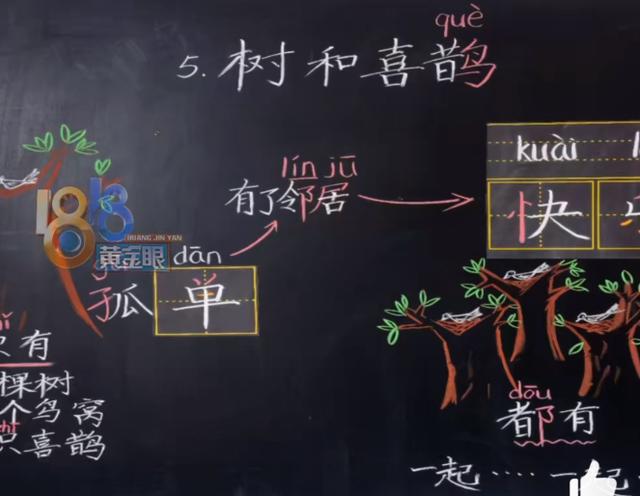 què
5. 树和喜鹊
kuài
lín jū
有了邻居
快
1818
HUANG JIN YAN
黄金眼
dān
孤单
只有
棵树
个鸟窝
只喜鹊
dōu
都有
一起····一起